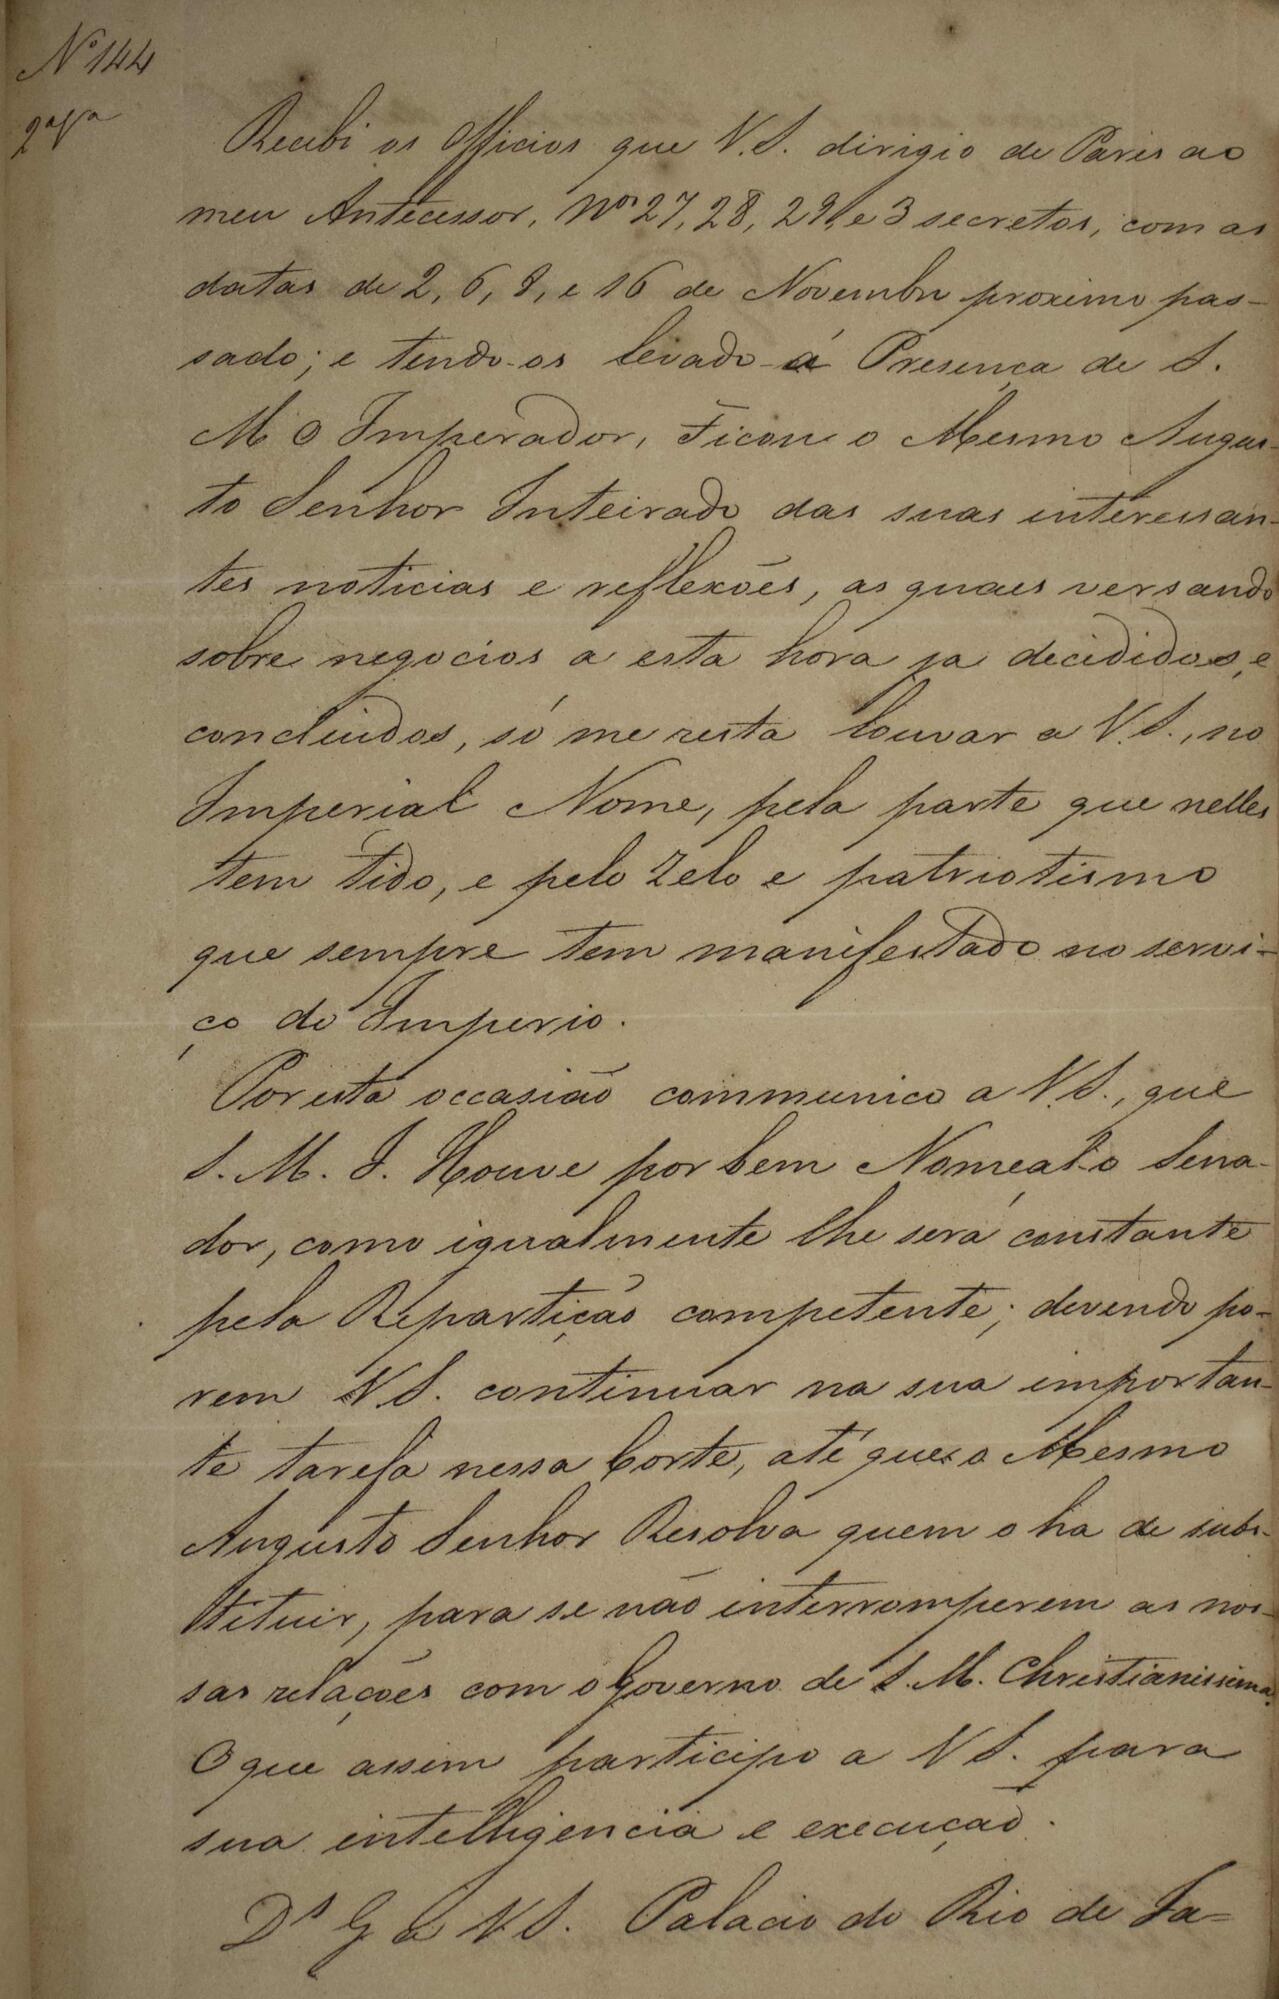 Nº 144
2ª Vª
Recebi os Officios que V.S. dirigio de Paris ao
meu Antecessor, Nos 27, 28, 29, e 3 secretos, com as
datas de 2, 6, 8, e 16 de Novembro proximo pas-
sado; e tendo-os levado á Presença de S.
M O Imperador, Ficou o Mesmo Augus-
to Senhor Inteirado das suas interessan-
tes noticias e reflexões, as quaes versando
sobre negocios a esta hora ja decididos, e
concluidos, só me resta louvar a V.S., no
Imperial Nome, pela parte que nelles
tem tido, e pelo zelo e patriotismo
que sempre tem manifestado no servi-
ço do Imperio.
Por esta occasião communico a V.S., que
S. M. I. Houve por bem Nomeal-o Sena-
dor, como igualmente lhe será constante
pela Repartição competente; devendo po-
rem V S. continuar na sua importan-
te tarefa nessa Corte, até que o Mesmo
Augusto Senhor Resolva quem o ha de subs-
tituir, para se não interromperem as nos-
sas relações com o Governo de S. M. Christianissima.
O que assim participo a V S. para
sua intelligencia e execução.
Ds G a V S. Palacio do Rio de Ja-